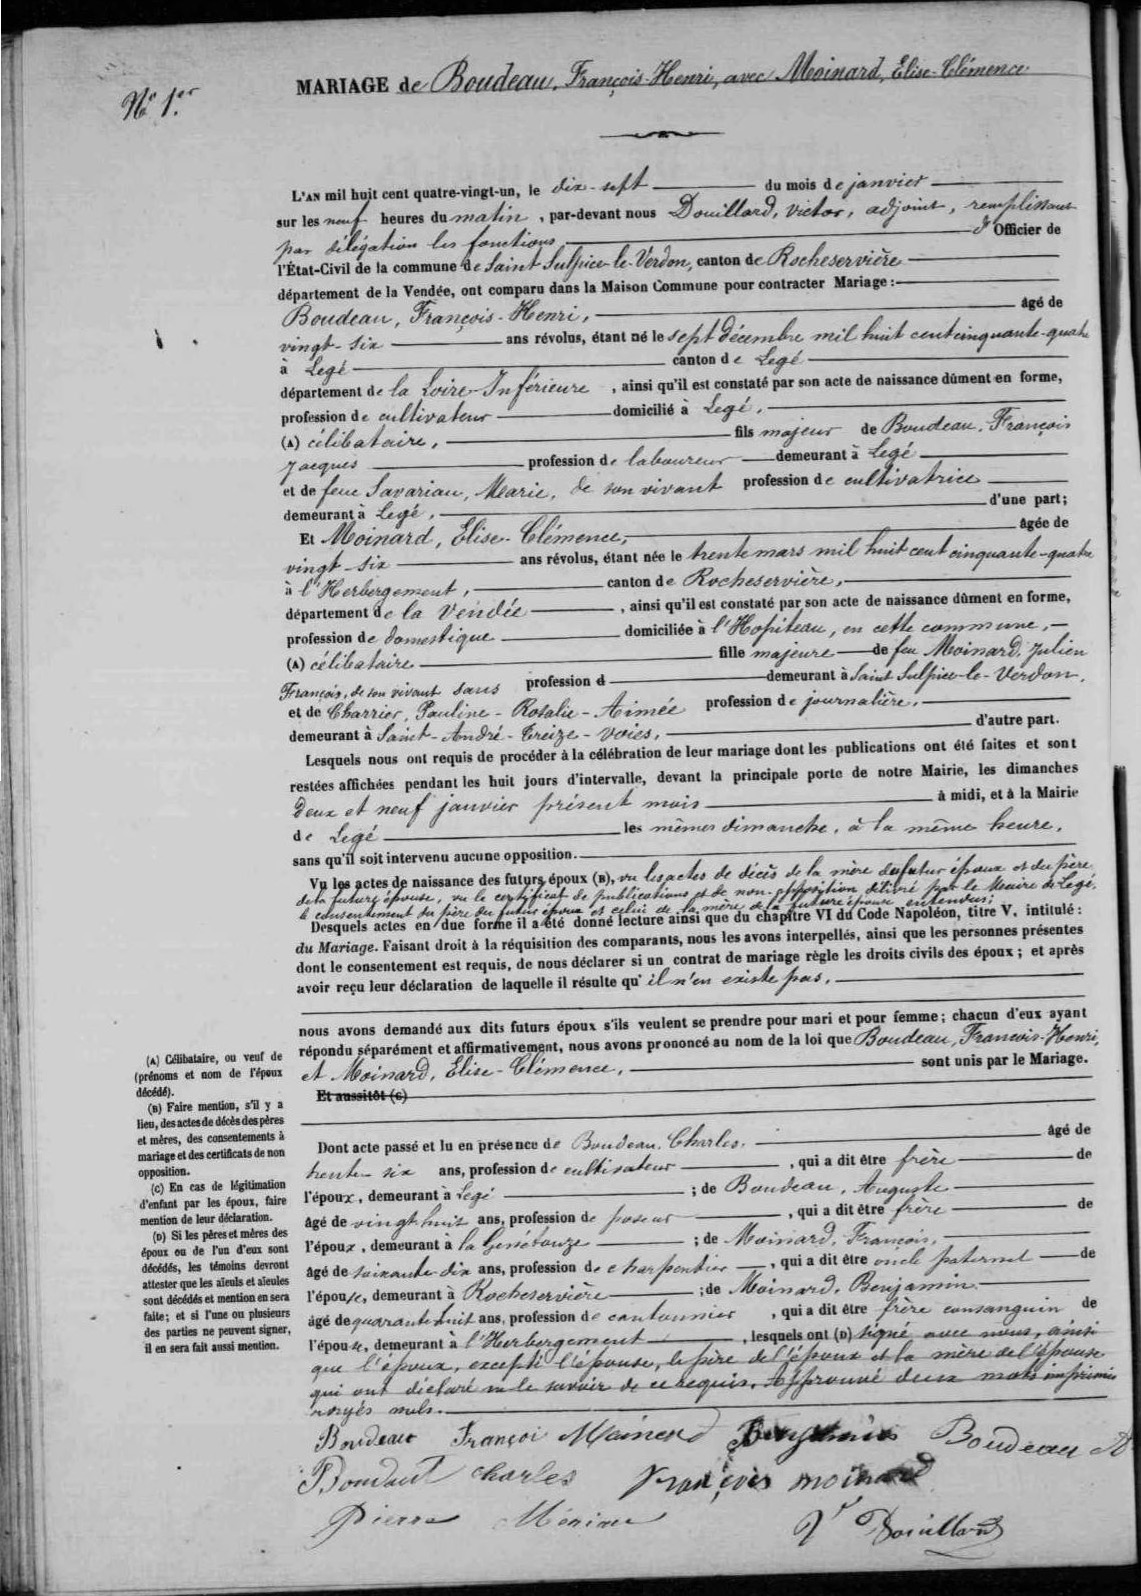 MARIAGE de Boudeau, François-Henri, avec Moinard, Elise-Clémence
No 1er
L'AN mil huit cent quatre-vingt-un, le dix-sept du mois de janvier
sur les neuf heures du matin, par-devant nous Douillard, Victor, adjoint, remplissant
par délégation les fonctions d'Officier de
l'État-Civil de la commune de Saint Sulpice-le-Verdon, canton de Rocheservière
département de la Vendée, ont comparu dans la Maison Commune pour contracter Mariage :
Boudeau, François-Henri, âgé de
vingt-six ans révolus, étant né le sept décembre mil huit cent cinquante-quatre
à Legé canton de Legé
département de la Loire-Inférieure, ainsi qu'il est constaté par son acte de naissance dûment en forme,
profession de cultivateur domicilié à Legé,
(A) célibataire, fils majeur de Boudeau, François
Jacques profession de laboureur demeurant à Legé
et de feue Savariau, Marie, de son vivant profession de cultivatrice
demeurant à Legé, d'une part;
Et Moinard, Elise-Clémence, âgée de
vingt-six ans révolus, étant née le trente mars mil huit cent cinquante-quatre
à l'Herbergement, canton de Rocheservière,
département de la Vendée, ainsi qu'il est constaté par son acte de naissance dûment en forme,
profession de domestique domiciliée à l'Hopiteau, en cette commune,
(A) célibataire fille majeure de feu Moinard, Julien
François, de son vivant sans profession d demeurant à Saint Sulpice-le-Verdon,
et de Charrier, Pauline-Rosalie-Aimée profession de journalière,
demeurant à Saint-André-Treize-Voies, d'autre part.
Lesquels nous ont requis de procéder à la célébration de leur mariage dont les publications ont été faites et sont
restées affichées pendant les huit jours d'intervalle, devant la principale porte de notre Mairie, les dimanches
deux et neuf janvier présent mois à midi, et à la Mairie
de Legé les mêmes dimanche, à la même heure,
sans qu'il soit intervenu aucune opposition.
Vu les actes de naissance des futurs époux (B), vu les actes de décès de la mère du futur époux et du père
de la future épouse, vu le certificat de publications et de non-opposition délivré par le Maire de Legé,
le consentement du père du futur époux et celui de la mère de la future épouse entendus;
Desquels actes en due forme il a été donné lecture ainsi que du chapitre VI du Code Napoléon, titre V. intitulé :
du Mariage. Faisant droit à la réquisition des comparants, nous les avons interpellés, ainsi que les personnes présentes
dont le consentement est requis, de nous déclarer si un contrat de mariage règle les droits civils des époux ; et après
avoir reçu leur déclaration de laquelle il résulte qu'il n'en existe pas,
nous avons demandé aux dits futurs époux s'ils veulent se prendre pour mari et pour femme ; chacun d'eux ayant
répondu séparément et affirmativement, nous avons prononcé au nom de la loi que Boudeau, François-Henri,
et Moinard, Elise-Clémence, sont unis par le Mariage.
Et aussitôt (C)
Dont acte passé et lu en présence de Boudeau, Charles, âgé de
trente-six ans, profession de cultivateur, qui a dit être frère de
l'époux, demeurant à Legé ; de Boudeau, Auguste
âgé de vingt-huit ans, profession de poseur, qui a dit être frère de
l'époux, demeurant à la Genétouze ; de Moinard, François,
âgé de soixante-dix ans, profession de charpentier, qui a dit être oncle paternel de
l'épouse, demeurant à Rocheservière ; de Moinard, Benjamin,
âgé de quarante-huit ans, profession de cantonnier, qui a dit être frère consanguin de
l'épouse, demeurant à l'Herbergement, lesquels ont (D) signé avec nous, ainsi
que l'époux, excepté l'épouse, le père de l'époux et la mère de l'épouse
qui ont déclaré ne le savoir de ce requis. Approuvé deux mots imprimés
rayés nuls.
(A) Célibataire, ou veuf de
(prénoms et nom de l'époux
décédé).
(B) Faire mention, s'il y a
lieu, des actes de décès des pères
et mères, des consentements à
mariage et des certificats de non
opposition.
(C) En cas de légitimation
d'enfant par les époux, faire
mention de leur déclaration.
(D) Si les pères et mères des
époux ou de l'un d'eux sont
décédés, les témoins devront
attester que les aïeuls et aïeules
sont décédés et mention en sera
faite; et si l'une ou plusieurs
des parties ne peuvent signer,
il en sera fait aussi mention.
Boudeau François Moinard Benjamin Boudeau A
Boudaut charles françois moinard
Pierre Vr Douillard